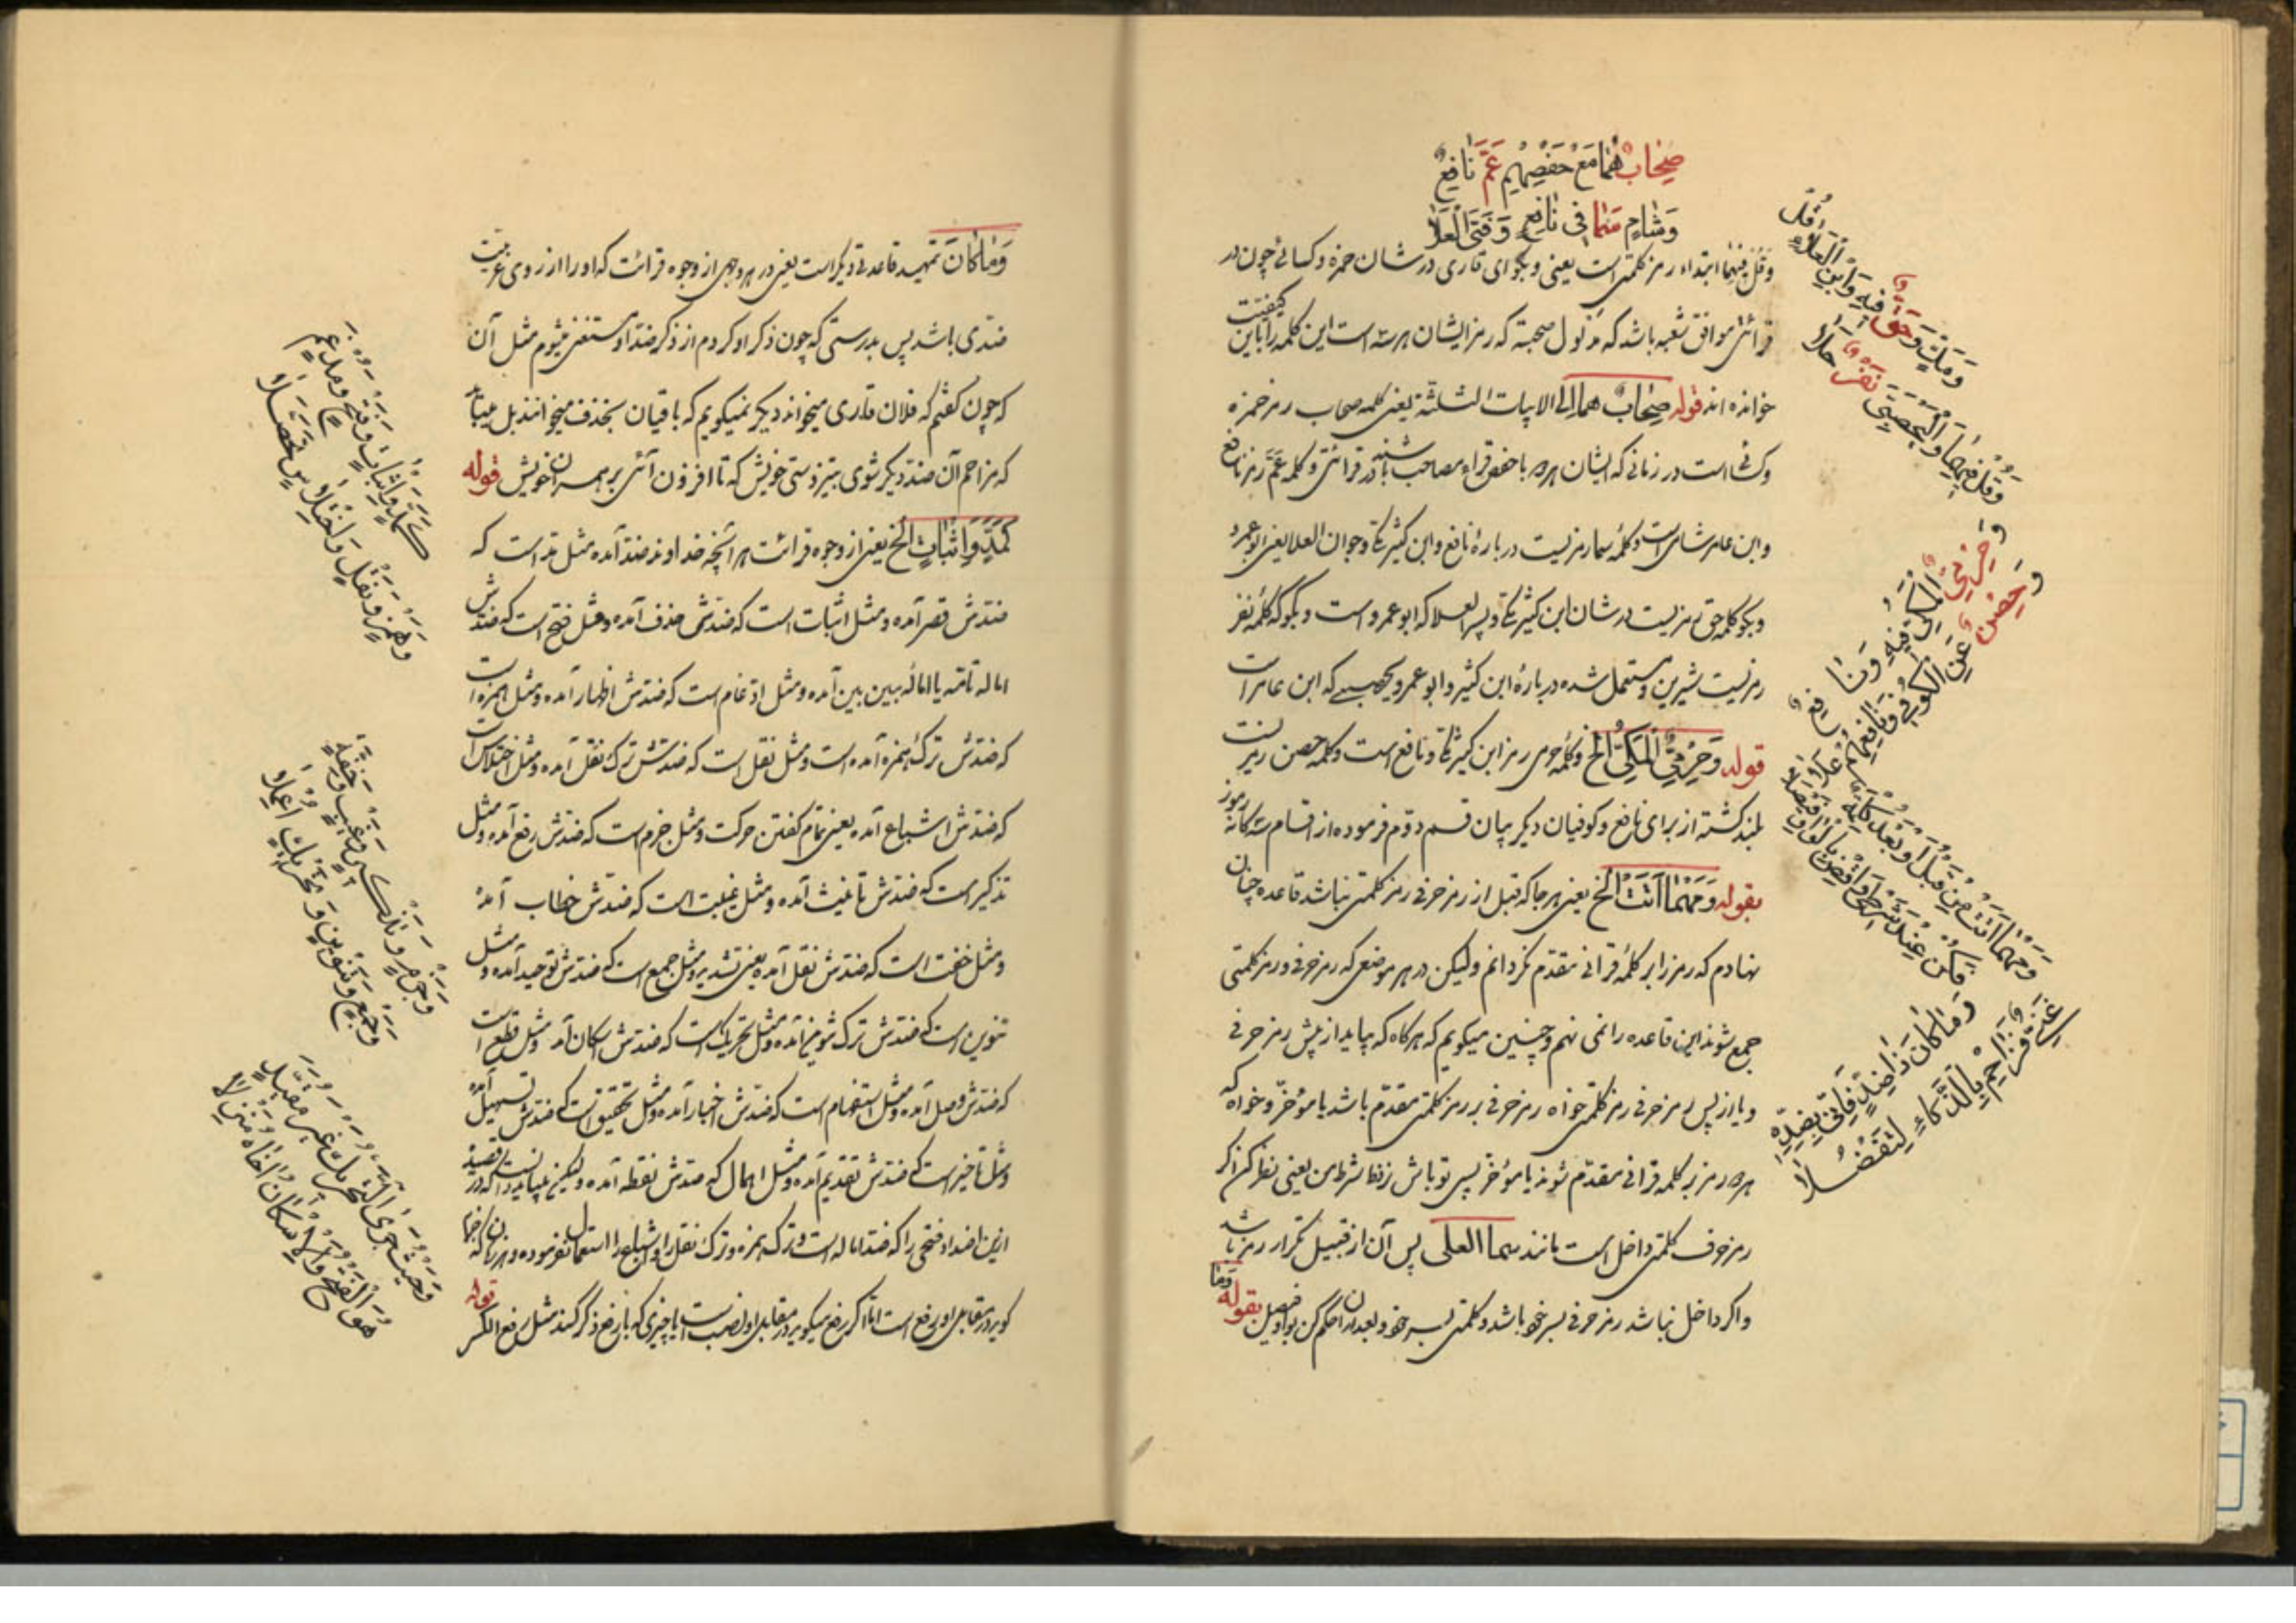 صِحَابٌ هُمَا مَعْ حَفْصِهِمْ عَمَّ نَافِعٌ
وَشَامٍ سَمَا فِی نَافِعٍ وَفَتَی الْعَلَا
وقل فیهما ابتداء رمز کلمتی است یعنی و بکو ای قاری در شان حمزه و کسائی چون در
قرائتی موافق شعبه باشد که مدلول صحبته که رمز ایشان هر سه است این کلمه را باین کیفیت
خوانده اند قوله صِحَابٌ هما الی الابیات الثلثة یعنی کلمه صحاب رمز حمزه
و کسائی است در زمانی که ایشان هر دو با حفص قراءه مصاحب باشند در قرائتی و کلمه عَمَّ رمز نافع
و ابن عامر شامی است و کلمهٔ سما رمزیست دربارهٔ نافع و ابن کثیر مکی و جوان العلا یعنی ابو عمرو
و بکو کلمه حق رمزیست در شان ابن کثیر مکی و پسر العلا که ابو عمرو است و بکو که کلمهٔ نفر
رمزیست شیرین و مستعمل شده دربارهٔ ابن کثیر و ابو عمرو و یحصبی که ابن عامر است
قوله وَحِرْمِیُّ الْمَکِّیُّ الخ و کلمه حرمی رمز ابن کثیر مکی و نافع است و کلمه حصن رمزیست
بلند کشته از برای نافع و کوفیان دیکر بیان قسم دوم فرموده از اقسام سه کانه رموز
بقوله وَمَهْمَا أَتَتْ الخ یعنی هر جا که قبل از رمز حرفی رمز کلمتی نباشد قاعده چنان
نهادم که رمز را بر کلمهٔ قرآنی مقدّم نکردانم ولیکن در هر موضعی که رمز حرفی و رمز کلمتی
جمع شوند این قاعده را نمی نهم و چنین میکویم که هرکاه که بیاید از پیش رمز حرفی
و یا از پس رمز حرفی رمز کلمتی خواه رمز حرفی بر رمز کلمتی مقدّم باشد یا مؤخّر و خواه که
هر دو رمز بر کلمه قرآنی مقدّم شوند یا مؤخّر پس تو باش نزد شرط من یعنی نظر کن اکر
رمز حرف کلمتی داخل است مانند سما العلی پس آن از قبیل تکرار رمز باشد
و اکر داخل نباشد رمز حرفی بسر خود باشد و کلمتی بسر خود و بعد از آن حکم کن بواو فیصل بقوله وَمَا
وَقُلْ فِیهِمَا وَالْیَحْصَبِی نَفَرٌ حَلَا
وَمَكٍّ وَحَقٌّ فِیهِ وَابْنِ الْعَلَاءِ قُلْ
وَحِرْمِیُّ الْمَکِّیُّ فِیهِ وَنَافِعٍ
وَحِصْنٌ عَنِ الْکُوفِی وَنَافِعِهِمْ عَلَا
وَمَهْمَا أَتَتْ مِنْ قَبْلُ أَوْ بَعْدُ کِلْمَةٌ
فَکُنْ عِنْدَ شَرْطِی وَاقْضِ بِالْوَاوِ فَیْصَلَا
وَمَا کَانَ ذَا ضِدٍّ فَإِنِّی بِضِدِّهِ
غَنِیٌّ فَزَاحِمْ بِالذَّکَاءِ لِتَفْضُلَا
وَمَا کَانَ تمهید قاعدهٔ دیکر است یعنی در هر وجهی از وجوه قرائت که او را از روی عربیت
ضدّی باشد پس بدرستی که چون ذکر او کردم از ذکر ضد او مستغنی میشوم مثل آن
که چون کفتم که فلان قاری میخواند دیکر نمیکویم که باقیان بحذف میخوانند بل میباید
که مزاحم آن ضد دیکر شوی بتیز دستی خویش که تا افزون آئی بر همسران خویش قوله
کَمَدٍّ وَإِثْبَاتٍ الخ یعنی از وجوه قرائت هر آنچه خداوند ضد آمده مثل مد است که
ضدش قصر آمده و مثل اثبات است که ضدش حذف آمده و مثل فتح است که ضدش
اماله تامّه یا امالهٔ بین بین آمده و مثل ادغام است که ضدش اظهار آمده و مثل همزه است
که ضدش ترک همزه آمده است و مثل نقل است که ضدش ترک نقل آمده و مثل اختلاس است
که ضدش اشباع آمده یعنی تمام کفتن حرکت و مثل جزم است که ضدش رفع آمده و مثل
تذکیر است که ضدش تانیث آمده و مثل غیبت است که ضدش خطاب آمده
و مثل خفت است که ضدش ثقل آمده یعنی تشدید و مثل جمع است که ضدش توحید آمده و مثل
تنوین است که ضدش ترک تنوین آمده و مثل تحریک است که ضدش اسکان آمده و مثل قطع است
که ضدش وصل آمده و مثل استفهام است که ضدش اخبار آمده و مثل تحقیق است که ضدش تسهیل آمده
و مثل تاخیر است که ضدش تقدیم آمده و مثل اهمال که ضدش نقطه آمده ولیکن
ازین اضداد فتحی را که ضد اماله است و ترک همزه و ترک نقل را و اشباع را استعمال نفرموده
کوید در مقابل او رفع است اما اکر رفع میکوید در مقابل او نصب است یا چیزی که با رفع ذکر کند مثل رفع الکسر قوله
کَمَدٍّ وَإِثْبَاتٍ وَفَتْحٍ وَمُدْغَمٍ
وَهَمْزٍ وَنَقْلٍ وَاخْتِلَاسٍ تَحَصَّلَا
وَجَزْمٍ وَتَذْکِیرٍ وَغَیْبٍ وَخِفَّةٍ
وَجَمْعٍ وَتَنْوِینٍ وَتَحْرِیكٍ اُعْمِلَا
وَحَیْثُ جَرَی التَّحْرِیكُ غَیْرَ مُقَیَّدٍ
هُوَ الْفَتْحُ وَالْإِسْکَانُ آخَاهُ مَنْزِلَا